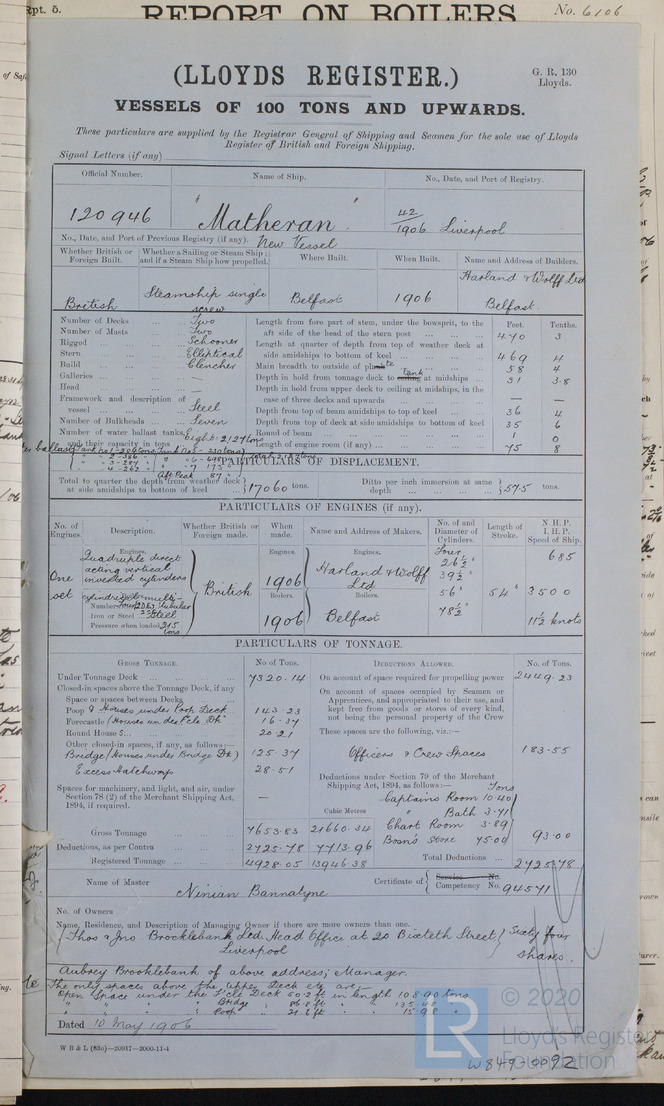 Rpt. 5.
REPORT ON BOILERS
No. 6106
(LLOYDS REGISTER.)
G. R. 130
Lloyds.
VESSELS OF 100 TONS AND UPWARDS.
These particulars are supplied by the Registrar General of Shipping and Seamen for the sole use of Lloyds
Register of British and Foreign Shipping.
Signal Letters (if any)
Official Number. Name of Ship. No., Date, and Port of Registry.
120946 "Matheran" 42/1906 Liverpool
No., Date, and Port of Previous Registry (if any). New Vessel
Whether British or Foreign Built. Whether a Sailing or Steam Ship; and if a Steam Ship how propelled. Where Built. When Built. Name and Address of Builders.
British Steamship single screw Belfast 1906 Harland & Wolff Ltd Belfast.
Number of Decks Two
Number of Masts Two
Rigged Schooner
Stern Elliptical
Build Clencher
Galleries —
Head —
Framework and description of vessel Steel
Number of Bulkheads Seven
Number of water ballast tanks, and their capacity in tons Eight: 2127 tons
Length from fore part of stem, under the bowsprit, to the aft side of the head of the stern post 470 3
Length at quarter of depth from top of weather deck at side amidships to bottom of keel 469 4
Main breadth to outside of plate 58 4
Depth in hold from tonnage deck to Tank at midships 31 3.8
Depth in hold from upper deck to ceiling at midships, in the case of three decks and upwards —
Depth from top of beam amidships to top of keel 36 4
Depth from top of deck at side amidships to bottom of keel 35 6
Round of beam 1 0
Length of engine room (if any) 75 8
Feet. Tenths.
Aft Peak 87
PARTICULARS OF DISPLACEMENT.
Total to quarter the depth from weather deck at side amidships to bottom of keel 17060 tons. Ditto per inch immersion at same depth 57.5 tons.
PARTICULARS OF ENGINES (if any).
No. of Engines. Description. Whether British or Foreign made. When made. Name and Address of Makers. No. of and Diameter of Cylinders. Length of Stroke. N.H.P. I.H.P. Speed of Ship.
One set
Engines.
Quadruple direct
acting vertical
inverted cylinders
Number
Iron or Steel Steel
Pressure when loaded 215
British
Engines.
1906
Boilers.
1906
Engines.
Harland & Wolff
Ltd
Boilers.
Belfast
Four
26½"
39½"
56"
78½"
54"
685
3500
11½ knots
PARTICULARS OF TONNAGE.
GROSS TONNAGE. No. of Tons. DEDUCTIONS ALLOWED. No. of Tons.
Under Tonnage Deck 7320.14
Closed-in spaces above the Tonnage Deck, if any
Space or spaces between Decks
Poop & Houses under Poop Deck 143.23
Forecastle (Houses under F'cle Dk) 16.37
Round Houses 20.21
Other closed-in spaces, if any, as follows:—
Bridge (Houses under Bridge Dk) 125.37
Excess Hatchways 28.51
Spaces for machinery, and light, and air, under Section 78 (2) of the Merchant Shipping Act, 1894, if required. —
Cubic Metres
Gross Tonnage 7653.83 21660.34
Deductions, as per Contra 2725.78 7713.96
Registered Tonnage 4928.05 13946.38
On account of space required for propelling power 2449.23
On account of spaces occupied by Seamen or Apprentices, and appropriated to their use, and kept free from goods or stores of every kind, not being the personal property of the Crew
These spaces are the following, viz.:—
Officers & Crew Spaces 183.55
Deductions under Section 79 of the Merchant Shipping Act, 1894, as follows:—
Tons
Captains Room 10.40
" Bath 3.71
Chart Room 3.89
Bosn's Store 75.00
93.00
Total Deductions 2725.78
Name of Master Ninian Bannatyne
Certificate of Service No. Competency No. 94571
No. of Owners
Name, Residence, and Description of Managing Owner if there are more owners than one.
Thos & Jno Brocklebank Ltd. Head Office at 20 Bixteth Street, Liverpool
Sixty four shares.
Aubrey Brocklebank of above address; Manager.
The only spaces above the Upper Deck etc are:
Open Space under the F'cle Deck 50.2 ft in length 108.90 tons
" " " Bridge " 86.8 ft " 135.48 "
" " " Poop " 21.6 ft " 15.98 "
Dated 10 May 1906
W B & L (83o)—20937—2000-11-4
© 2020
LR
Lloyd's Register
Foundation
W849-0092